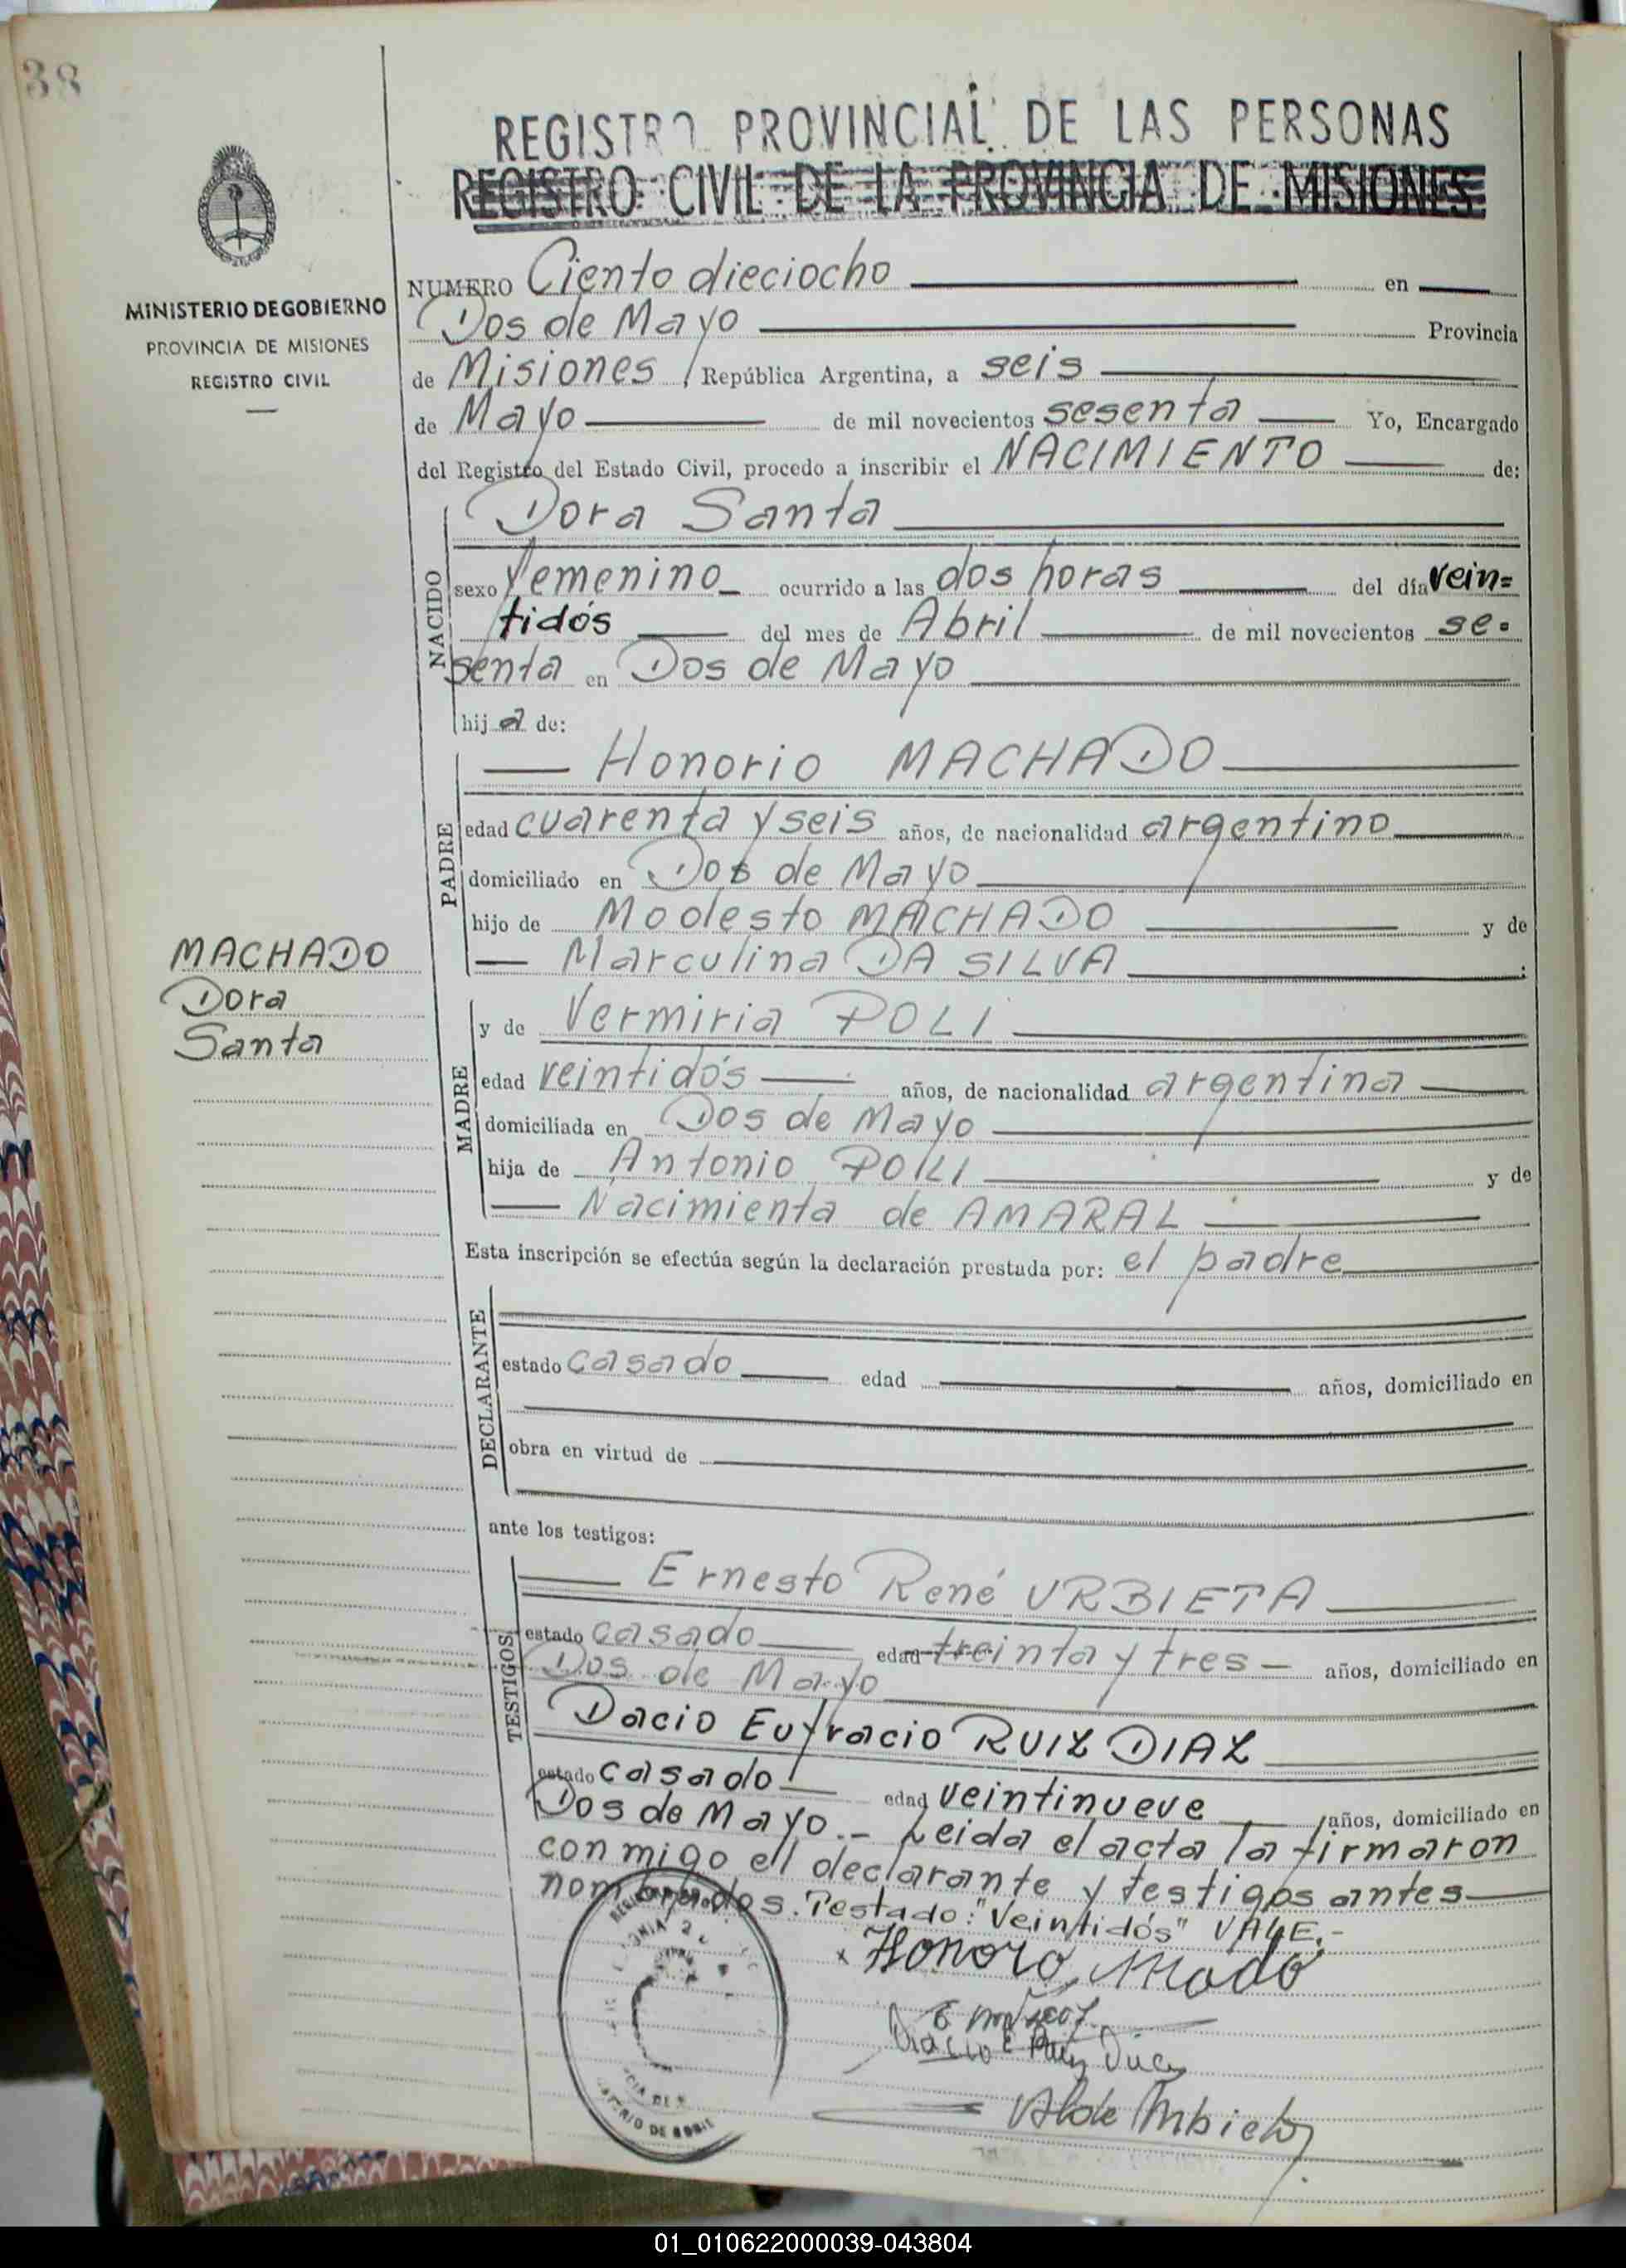 38
REGISTRO PROVINCIAL DE LAS PERSONAS
REGISTRO CIVIL DE LA PROVINCIA DE MISIONES
MINISTERIO DE GOBIERNO
PROVINCIA DE MISIONES
REGISTRO CIVIL
NUMERO Ciento dieciocho en
Dos de Mayo Provincia
de Misiones, República Argentina, a seis
de Mayo de mil novecientos sesenta Yo, Encargado
del Registro del Estado Civil, procedo a inscribir el NACIMIENTO de:
NACIDO
Dora Santa
sexo femenino ocurrido a las dos horas del día vein=
tidós del mes de Abril de mil novecientos se=
senta en Dos de Mayo
hija de:
PADRE
Honorio MACHADO
edad cuarenta y seis años, de nacionalidad argentino
domiciliado en Dos de Mayo
hijo de Modesto MACHADO y de
Marculina DA SILVA ;
MACHADO
Dora
Santa
MADRE
y de Vermiria POLI
edad veintidós años, de nacionalidad argentina
domiciliada en Dos de Mayo
hija de Antonio POLI y de
Nacimienta de AMARAL
Esta inscripción se efectúa según la declaración prestada por: el padre
DECLARANTE
estado casado edad años, domiciliado en
obra en virtud de
ante los testigos:
TESTIGOS
Ernesto René URBIETA
estado casado edad treinta y tres años, domiciliado en
Dos de Mayo
Dacio Eufracio RUIZ DIAZ
estado casado edad veintinueve años, domiciliado en
Dos de Mayo.- Leida el acta la firmaron
conmigo el declarante y testigos antes
nombrados. Testado: "Veintidós" VALE.-
x Honoro Mado
Dacio E Ruiz Diaz
01_010622000039-043804